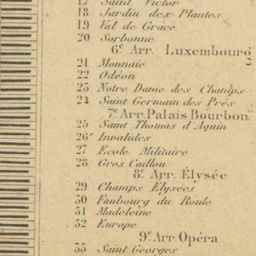 17 Saint Victor
18 Jardin des Plantes
19 Val de Grâce
20 Sorbonne
6e Arr. Luxembourg
21 Monnaie
22 Odéon
23 Notre Dame des Champs
24 Saint Germain des Prés
7e Arr. Palais Bourbon
25 Saint Thomas d'Aquin
26 Invalides
27 Ecole Militaire
28 Gros Caillou
8e Arr. Élysée
29 Champs Elysées
30 Faubourg du Roule
31 Madeleine
32 Europe
9e Arr. Opéra
33 Saint Georges